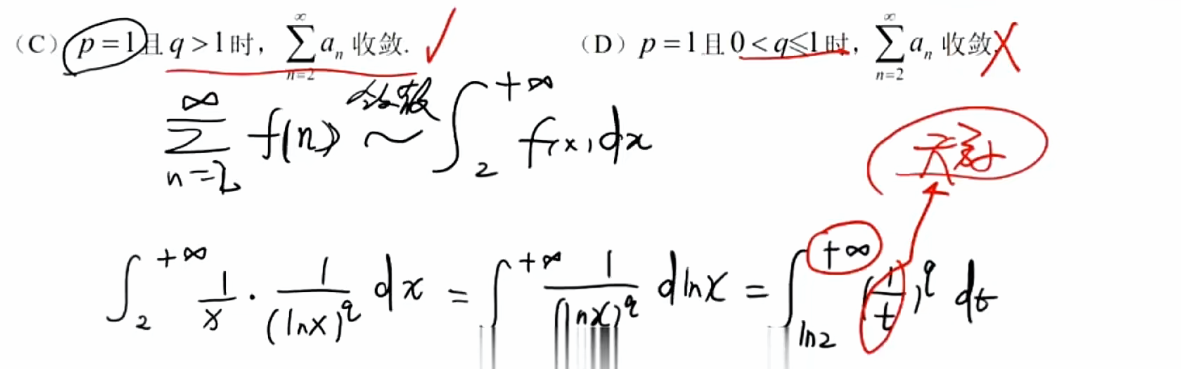 (C) p=1且q>1时, ∑_{n=2}^{∞} a_n 收敛. ✓ (D) p=1且0<q≤1时, ∑_{n=2}^{∞} a_n 收敛 ✗
∑_{n=2}^{∞} f(n) 敛散 ~ ∫_2^{+∞} f(x)dx
∫_2^{+∞} 1/x · 1/(lnx)^q dx = ∫^{+∞} 1/(lnx)^q dlnx = ∫_{ln2}^{+∞} (1/t)^q dt